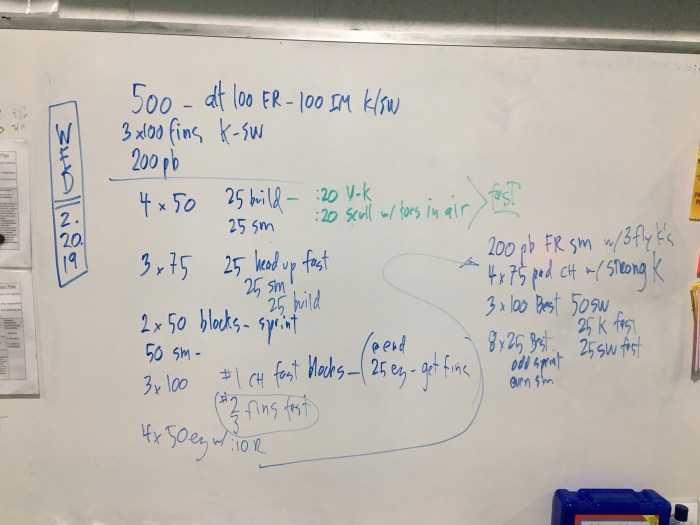 WED
2.
20.
19
500 - alt 100 FR - 100 IM K/SW
3x100 fins K-SW
200 pb
4 x 50 25 build - :20 V-K
25 sm :20 scull w/ toes in air
fast
3 x 75 25 head up fast
25 sm
25 build
2 x 50 blocks - sprint
50 sm -
3 x 100 #1 CH fast blocks - (@ end
25 ez - get fins)
#2
3 fins fast
4 x 50 ez w/ :10 R
200 pb FR sm w/ 3 fly K's
4 x 75 pad CH w/ strong K
3 x 100 Best 50 SW
25 K fast
25 SW fast
8 x 25 Best
odd sprint
even sm